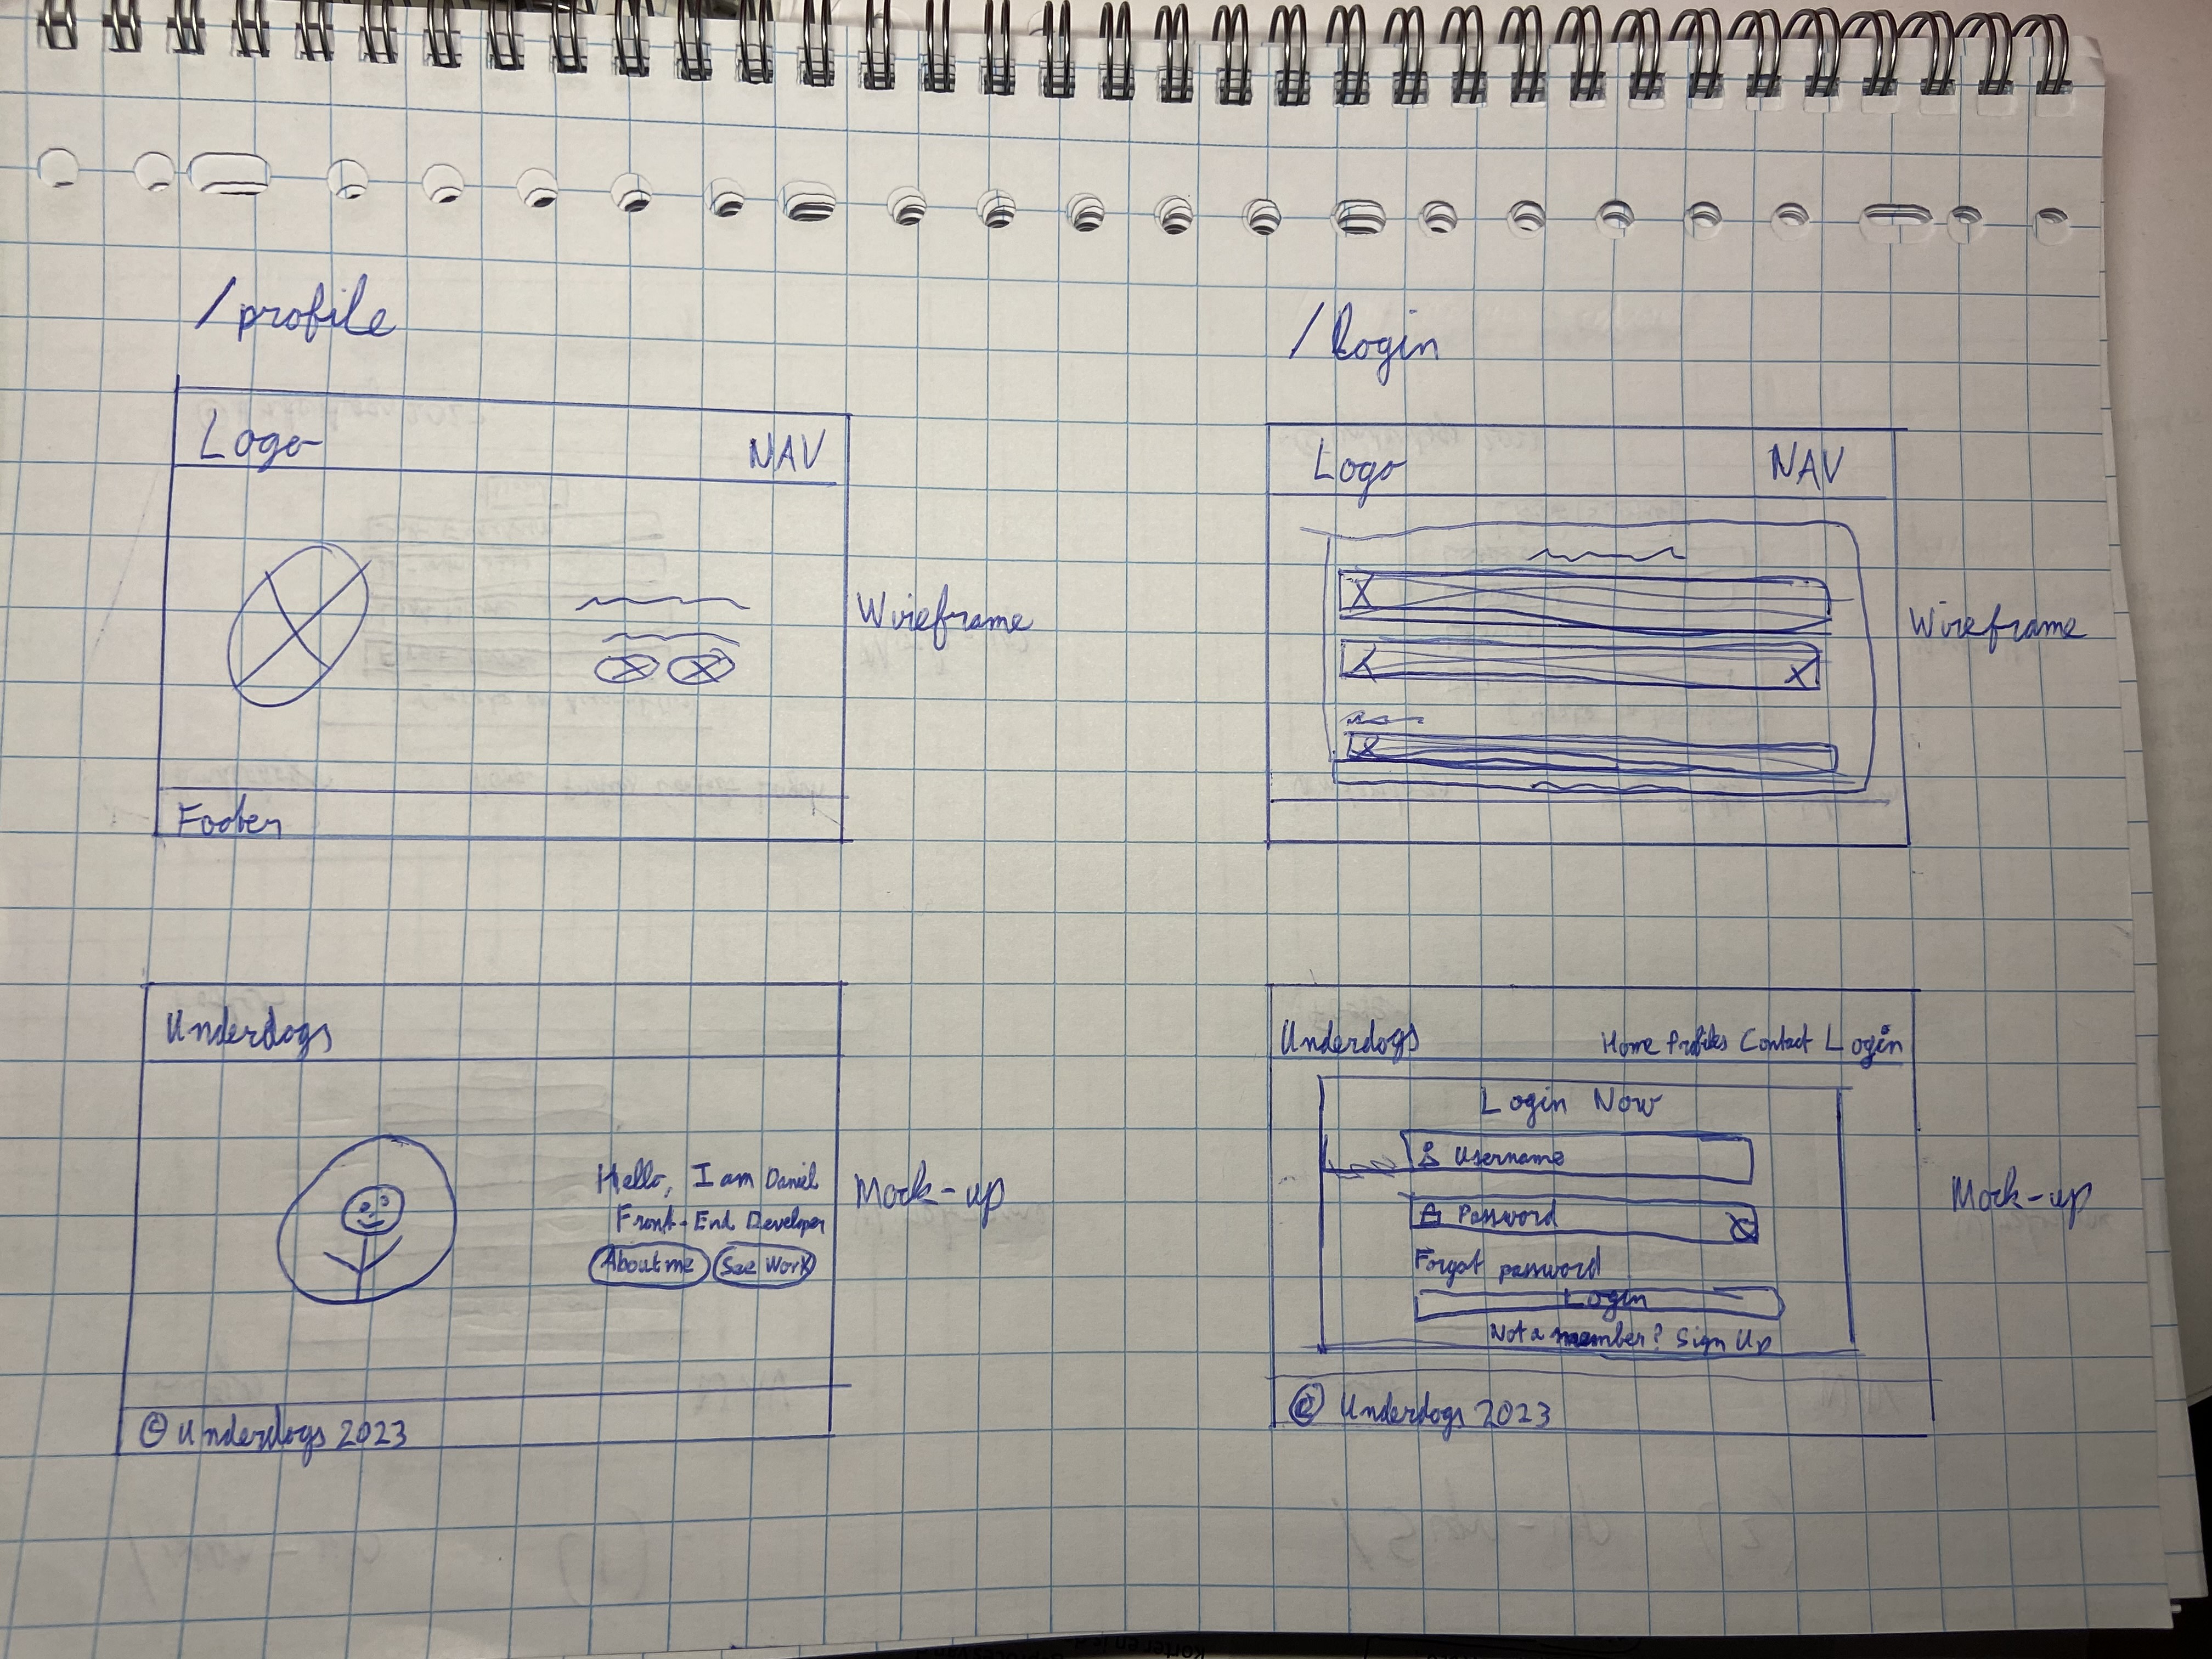 /profile
Logo
NAV
Footer
Wireframe
Underdogs
Hello, I am Daniel
Front-End Developer
About me
See Work
© Underdogs 2023
Mock-up
/login
Logo
NAV
Wireframe
Underdogs
Home Profiles Contact Login
Login Now
Username
Password
Forgot password
Login
Not a member? Sign Up
© Underdogs 2023
Mock-up